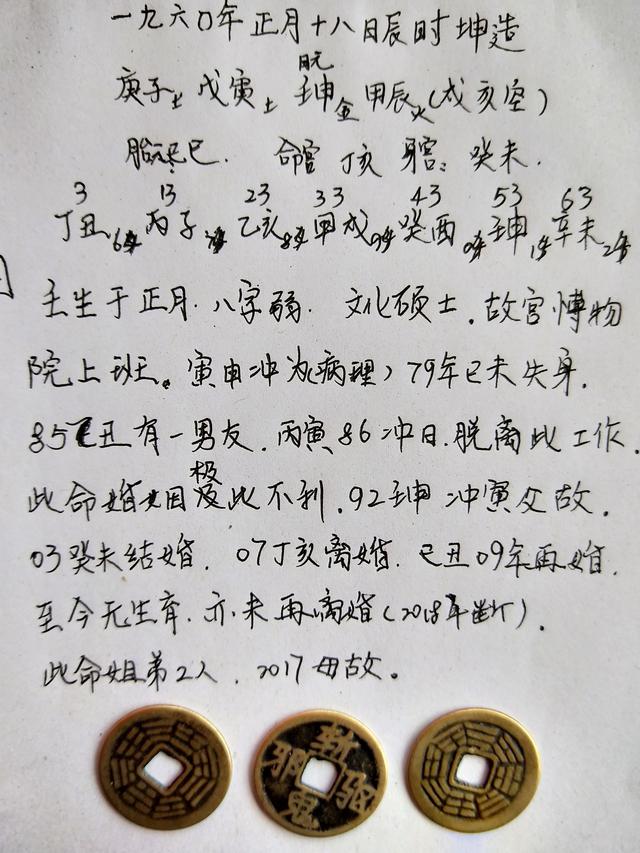 一九六〇年正月十八日辰时坤造
庚子土戊寅土壬申金甲辰火(戌亥空)
胎元己巳. 命宫丁亥 癸未.
3 13 23 33 43 53 63
丁丑 丙子 乙亥 甲戌 癸酉 壬申 辛未
壬生于正月.八字弱. 文化硕士.故宫博物
院上班。寅申冲为(病理)79年己未失身.
85乙丑有一男友.丙寅86冲日.脱离此工作.
此命婚姻极此不利.92壬申冲寅父故.
03癸未结婚. 07丁亥离婚.己丑09年再婚.
至今无生育.亦未再离婚(2018年断).
此命姐弟2人.2017母故。
斩驱鬼邪